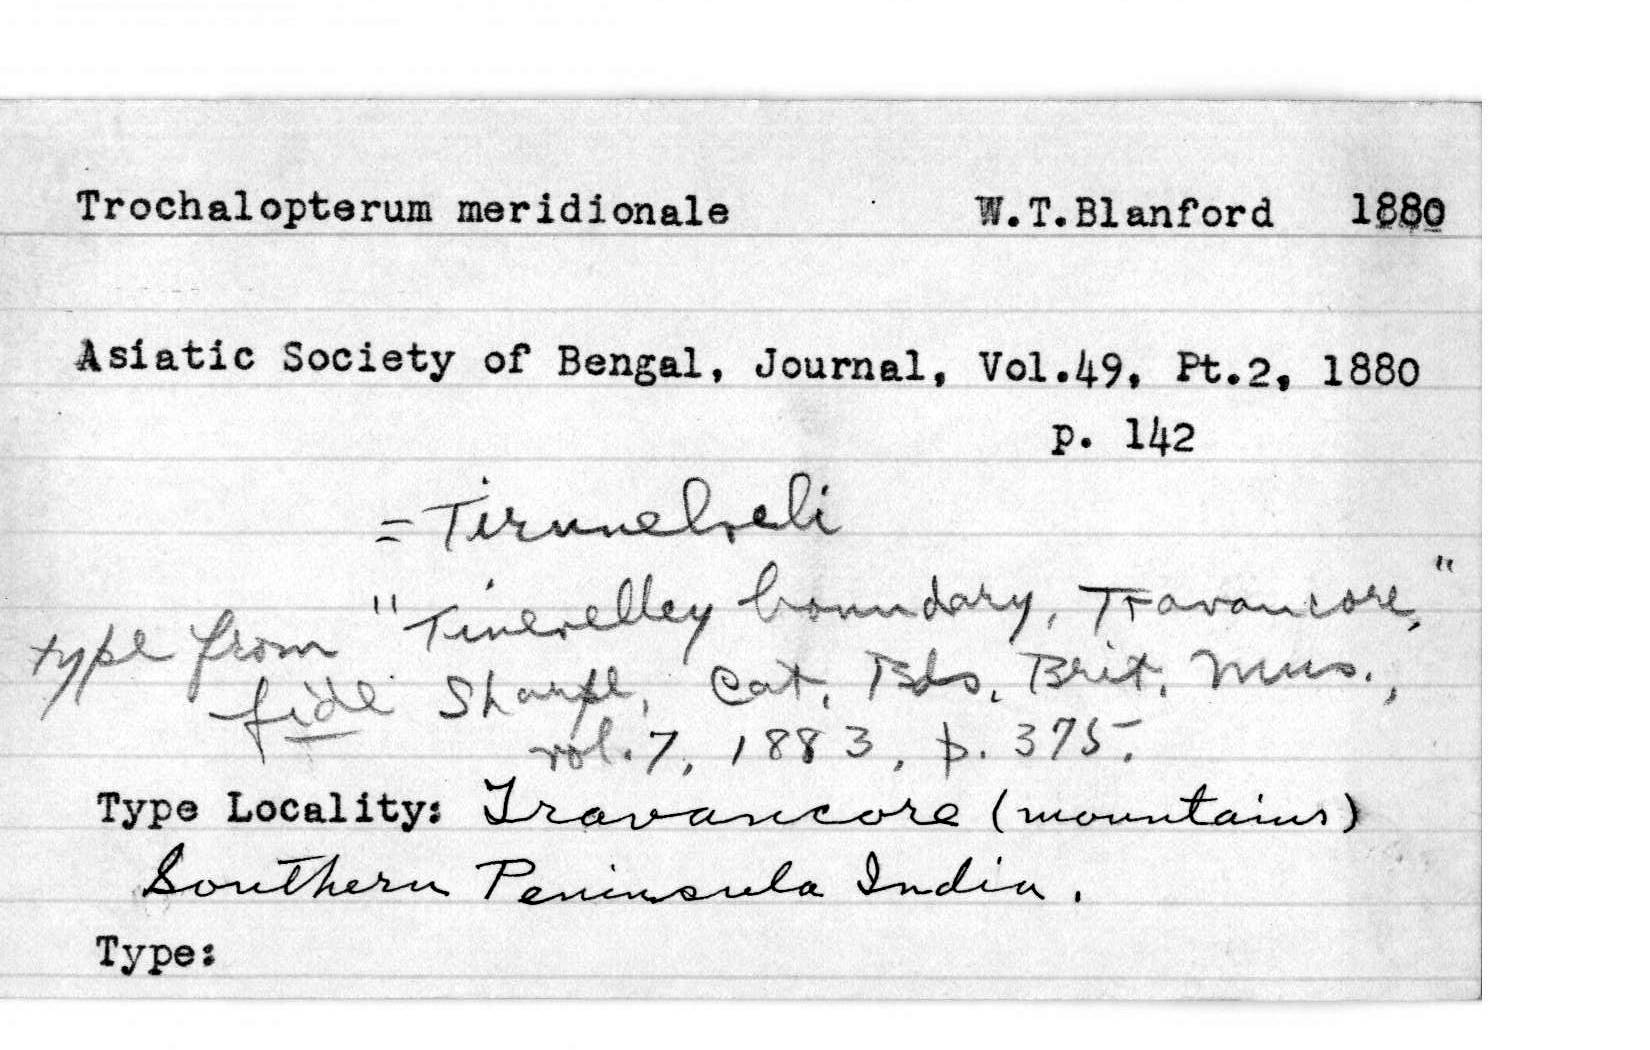 Trochalopterum meridionale W.T.Blanford 1880
Asiatic Society of Bengal, Journal, Vol.49, Pt.2, 1880
p. 142
= Tirunelveli
type from "Tinevelley boundary, Travancore,"
fide Sharpe, Cat. Bds. Brit. Mus.,
vol. 7, 1883, p. 375.
Type Locality: Travancore (mountains)
Southern Peninsula India.
Type: